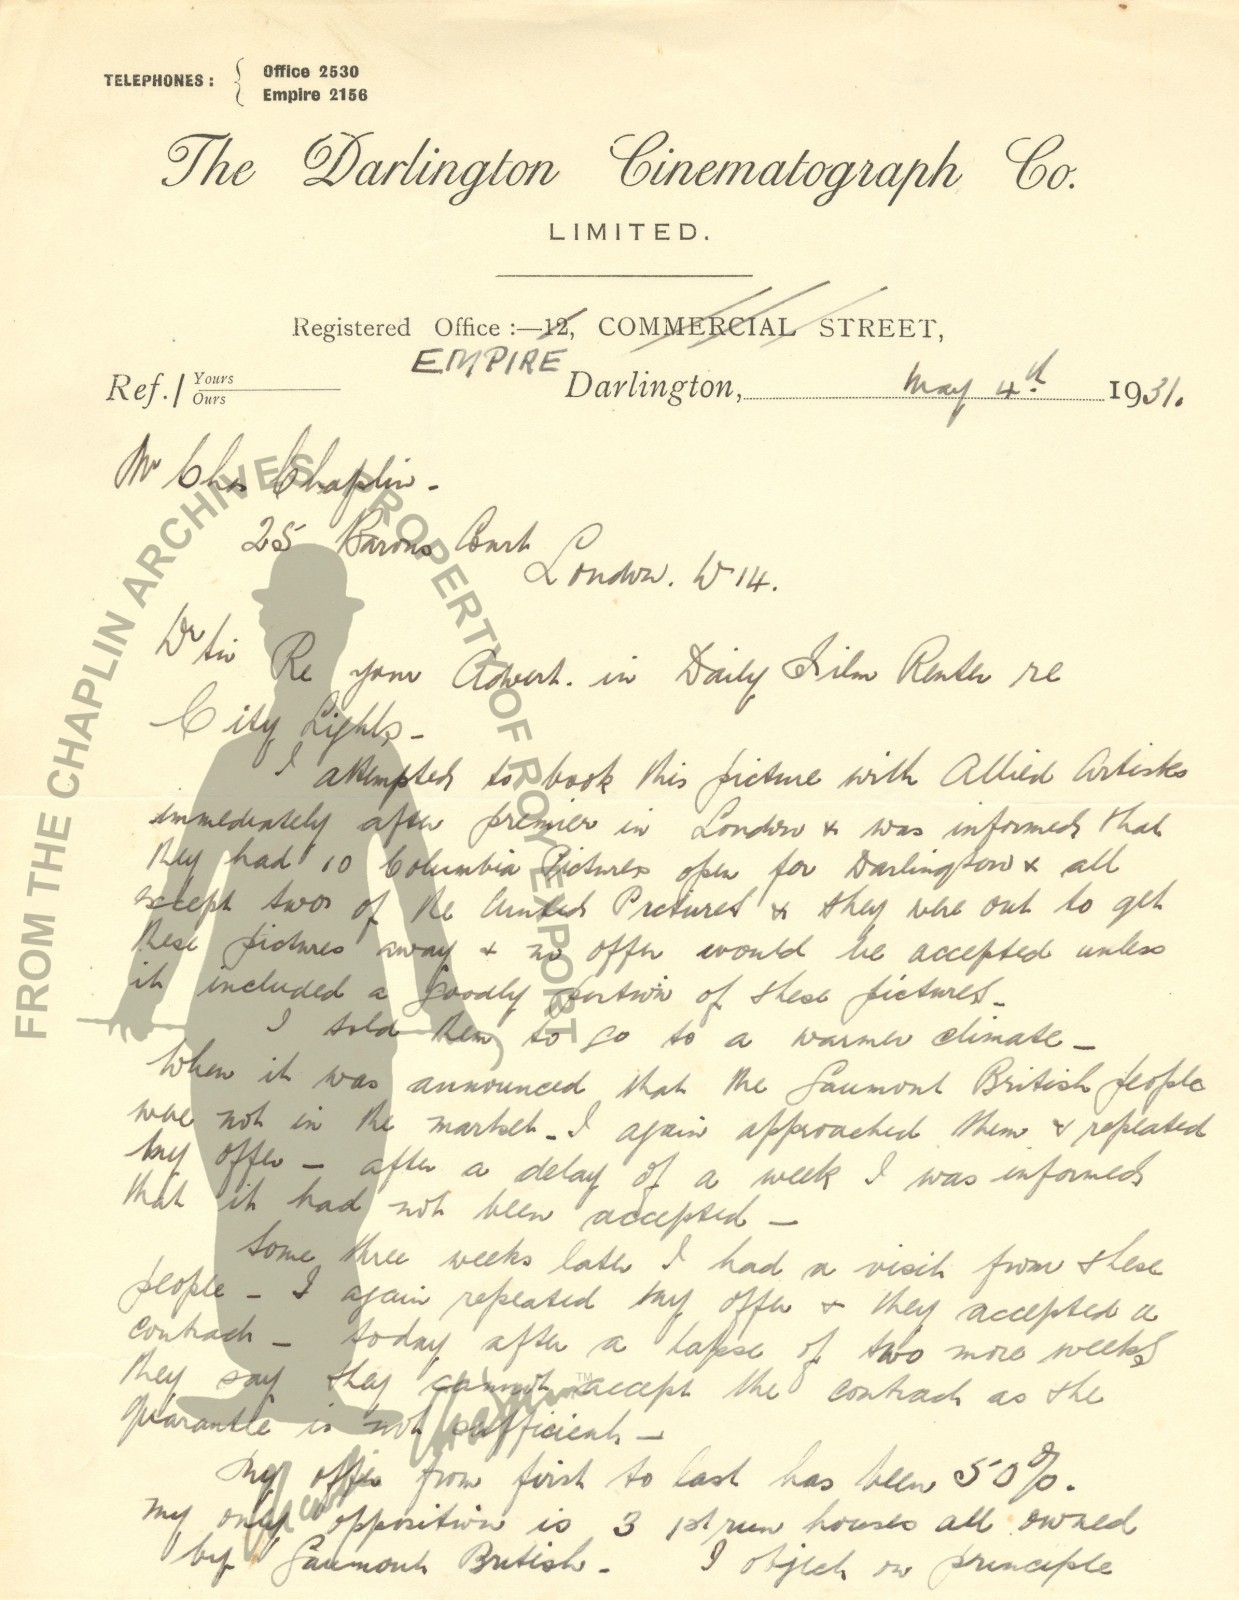 TELEPHONES: { Office 2530
Empire 2156
The Darlington Cinematograph Co.
LIMITED.
Registered Office :—12, COMMERCIAL STREET,
EMPIRE
Ref./ Yours
Ours
Darlington, May 4th 1931.
Mr Chas Chaplin -
25 Barons Court
London. W14.
Dr Sir Re your Advert. in Daily Film Renter re
City Lights -
I attempted to book this picture with Allied Artists
immediately after premier in London & was informed that
they had 10 Columbia Pictures open for Darlington & all
except two of the United Pictures & they were out to get
these pictures away & no offer would be accepted unless
it included a goodly portion of these pictures -
I told them to go to a warmer climate -
When it was announced that the Gaumont British people
were not in the market - I again approached them & repeated
my offer - after a delay of a week I was informed
that it had not been accepted -
Some three weeks later I had a visit from these
people - I again repeated my offer & they accepted a
contract - today after a lapse of two more weeks
they say they cannot accept the contract as the
guarantee is not sufficient -
My offer from first to last has been 50%.
my only opposition is 3 1st run houses all owned
by Gaumont British - I object on principle
FROM THE CHAPLIN ARCHIVES PROPERTY OF ROY EXPORT
TM